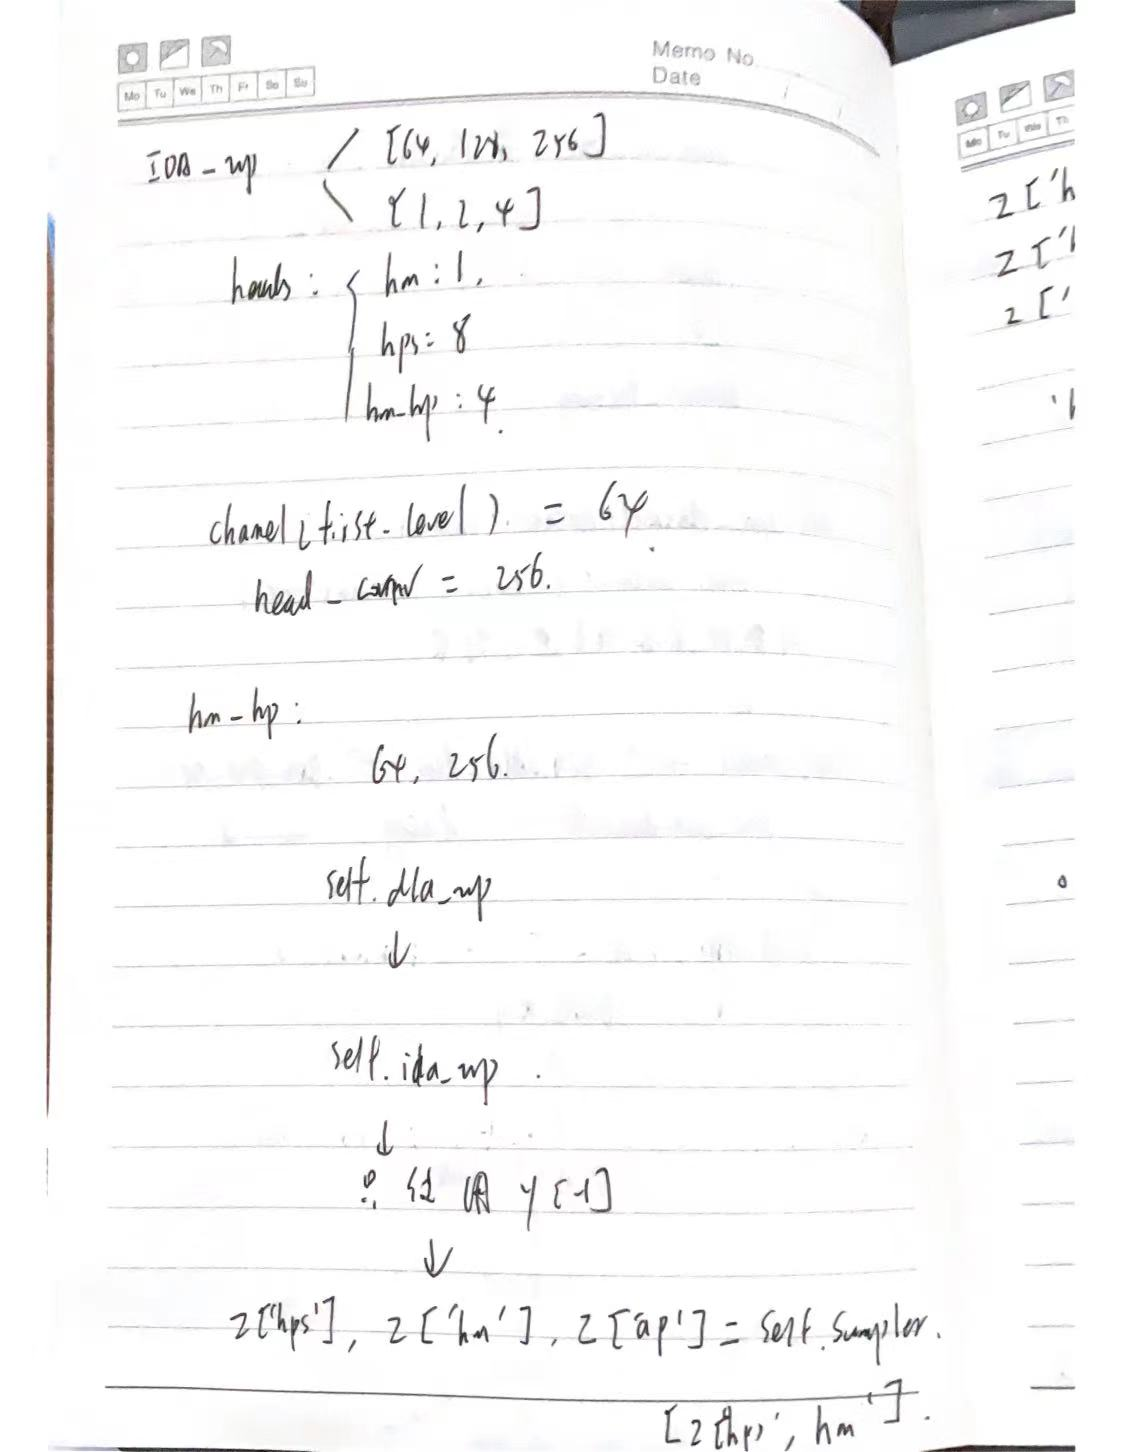 Memo No
Date
Mo Tu We Th Fr Sa Su
IDA-up [64, 128, 256]
[1, 2, 4]
heads: { hm: 1,
hps: 8
hm-hp: 4.
channel(first-level) = 64.
head-conv = 256.
hm-hp:
64, 256.
self.dla_up
↓
self.ida_up.
↓
只 使用 y[-1]
↓
z['hps'], z['hm'], z['ap'] = self.sampler.
[z['hps', hm'].
Mo Tu We Th
z['h
z['
z['
'h